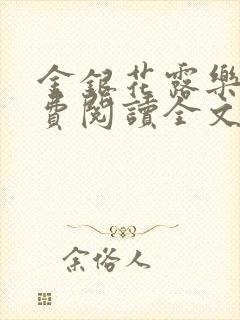 金銀花露樂
費閱讀全文
余俗人